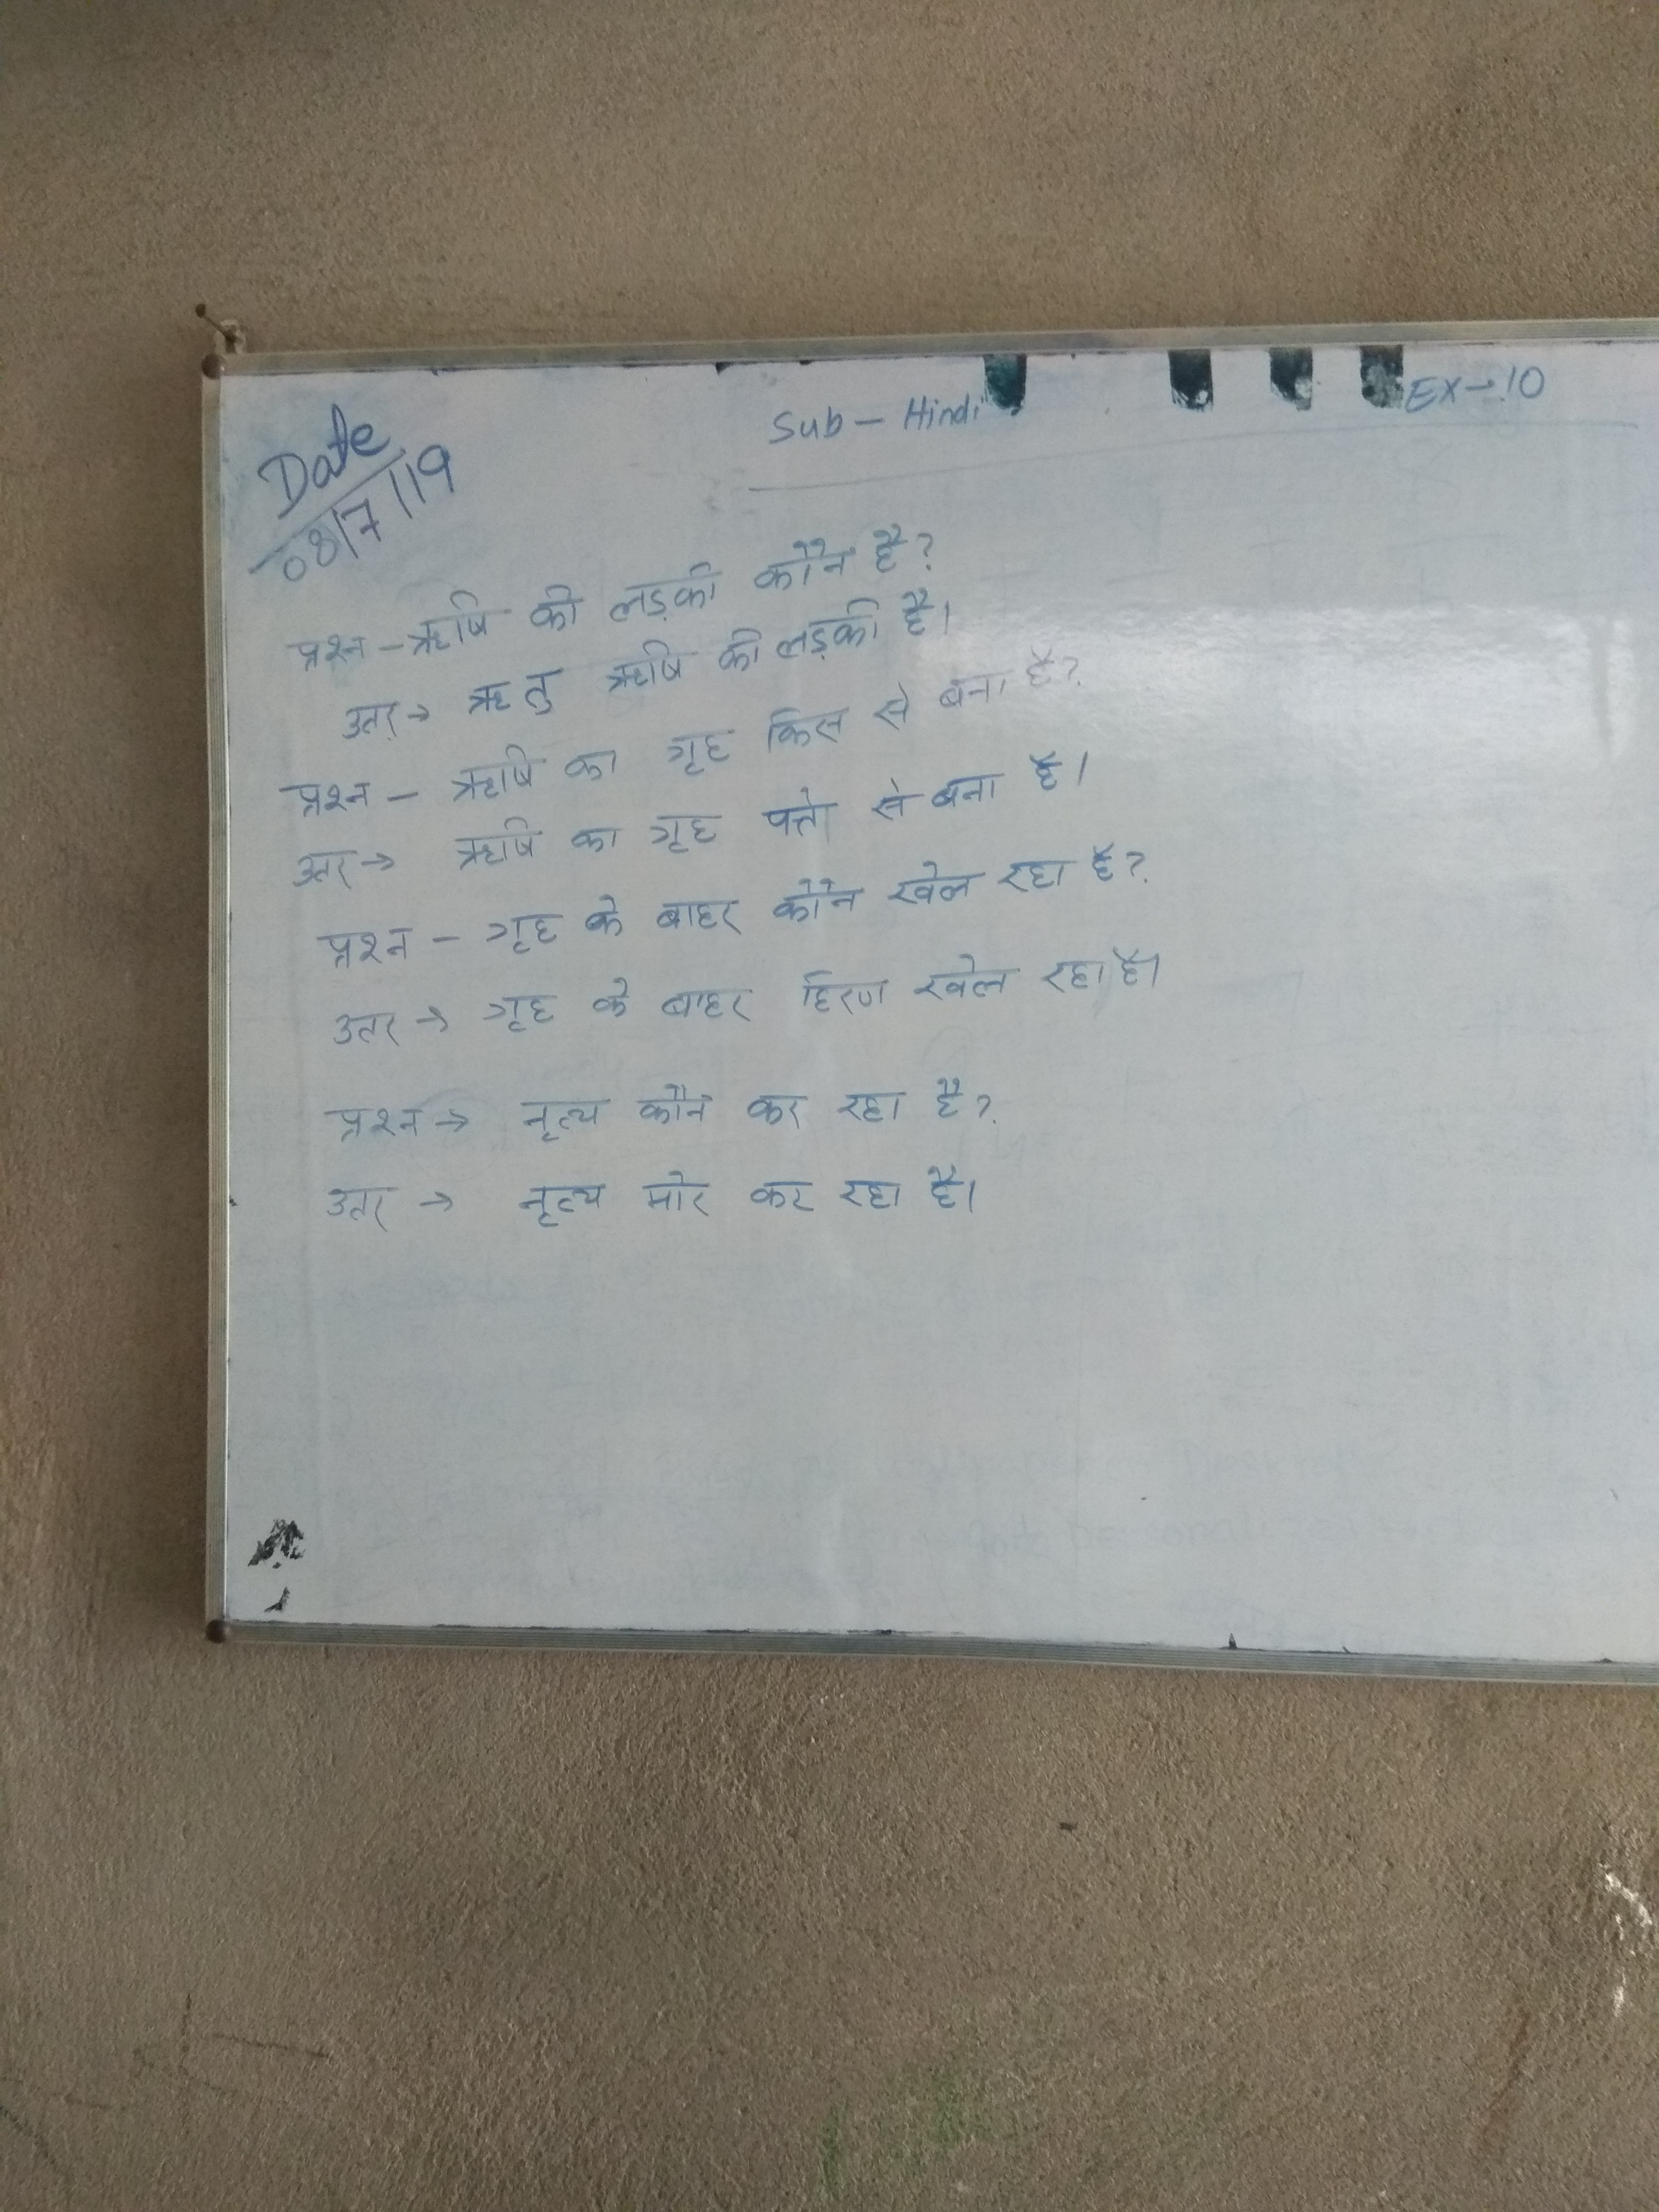 Date
08/7/19
Sub - Hindi
Ex → 10
प्रश्न - ऋषि की लड़की कौन है?
उतर → ऋतु ऋषि की लड़की है।
प्रश्न - ऋषि का गृह किस से बना है?
उतर → ऋषि का गृह पत्तो से बना है।
प्रश्न - गृह के बाहर कौन खेल रहा है?
उतर → गृह के बाहर हिरण खेल रहा है।
प्रश्न → नृत्य कौन कर रहा है?
उतर → नृत्य मोर कर रहा है।